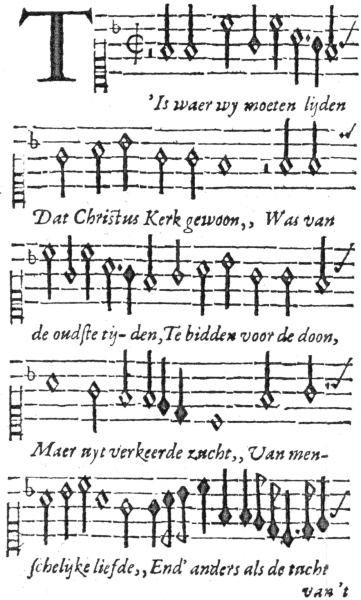 T
'Is waer wy moeten lijden
Dat Christus Kerk gewoon,, Was van
de oudste tij- den, Te bidden voor de doon,
Maer uyt verkeerde zucht,, Van men-
schelijke liefde,, End' anders als de tucht
van't